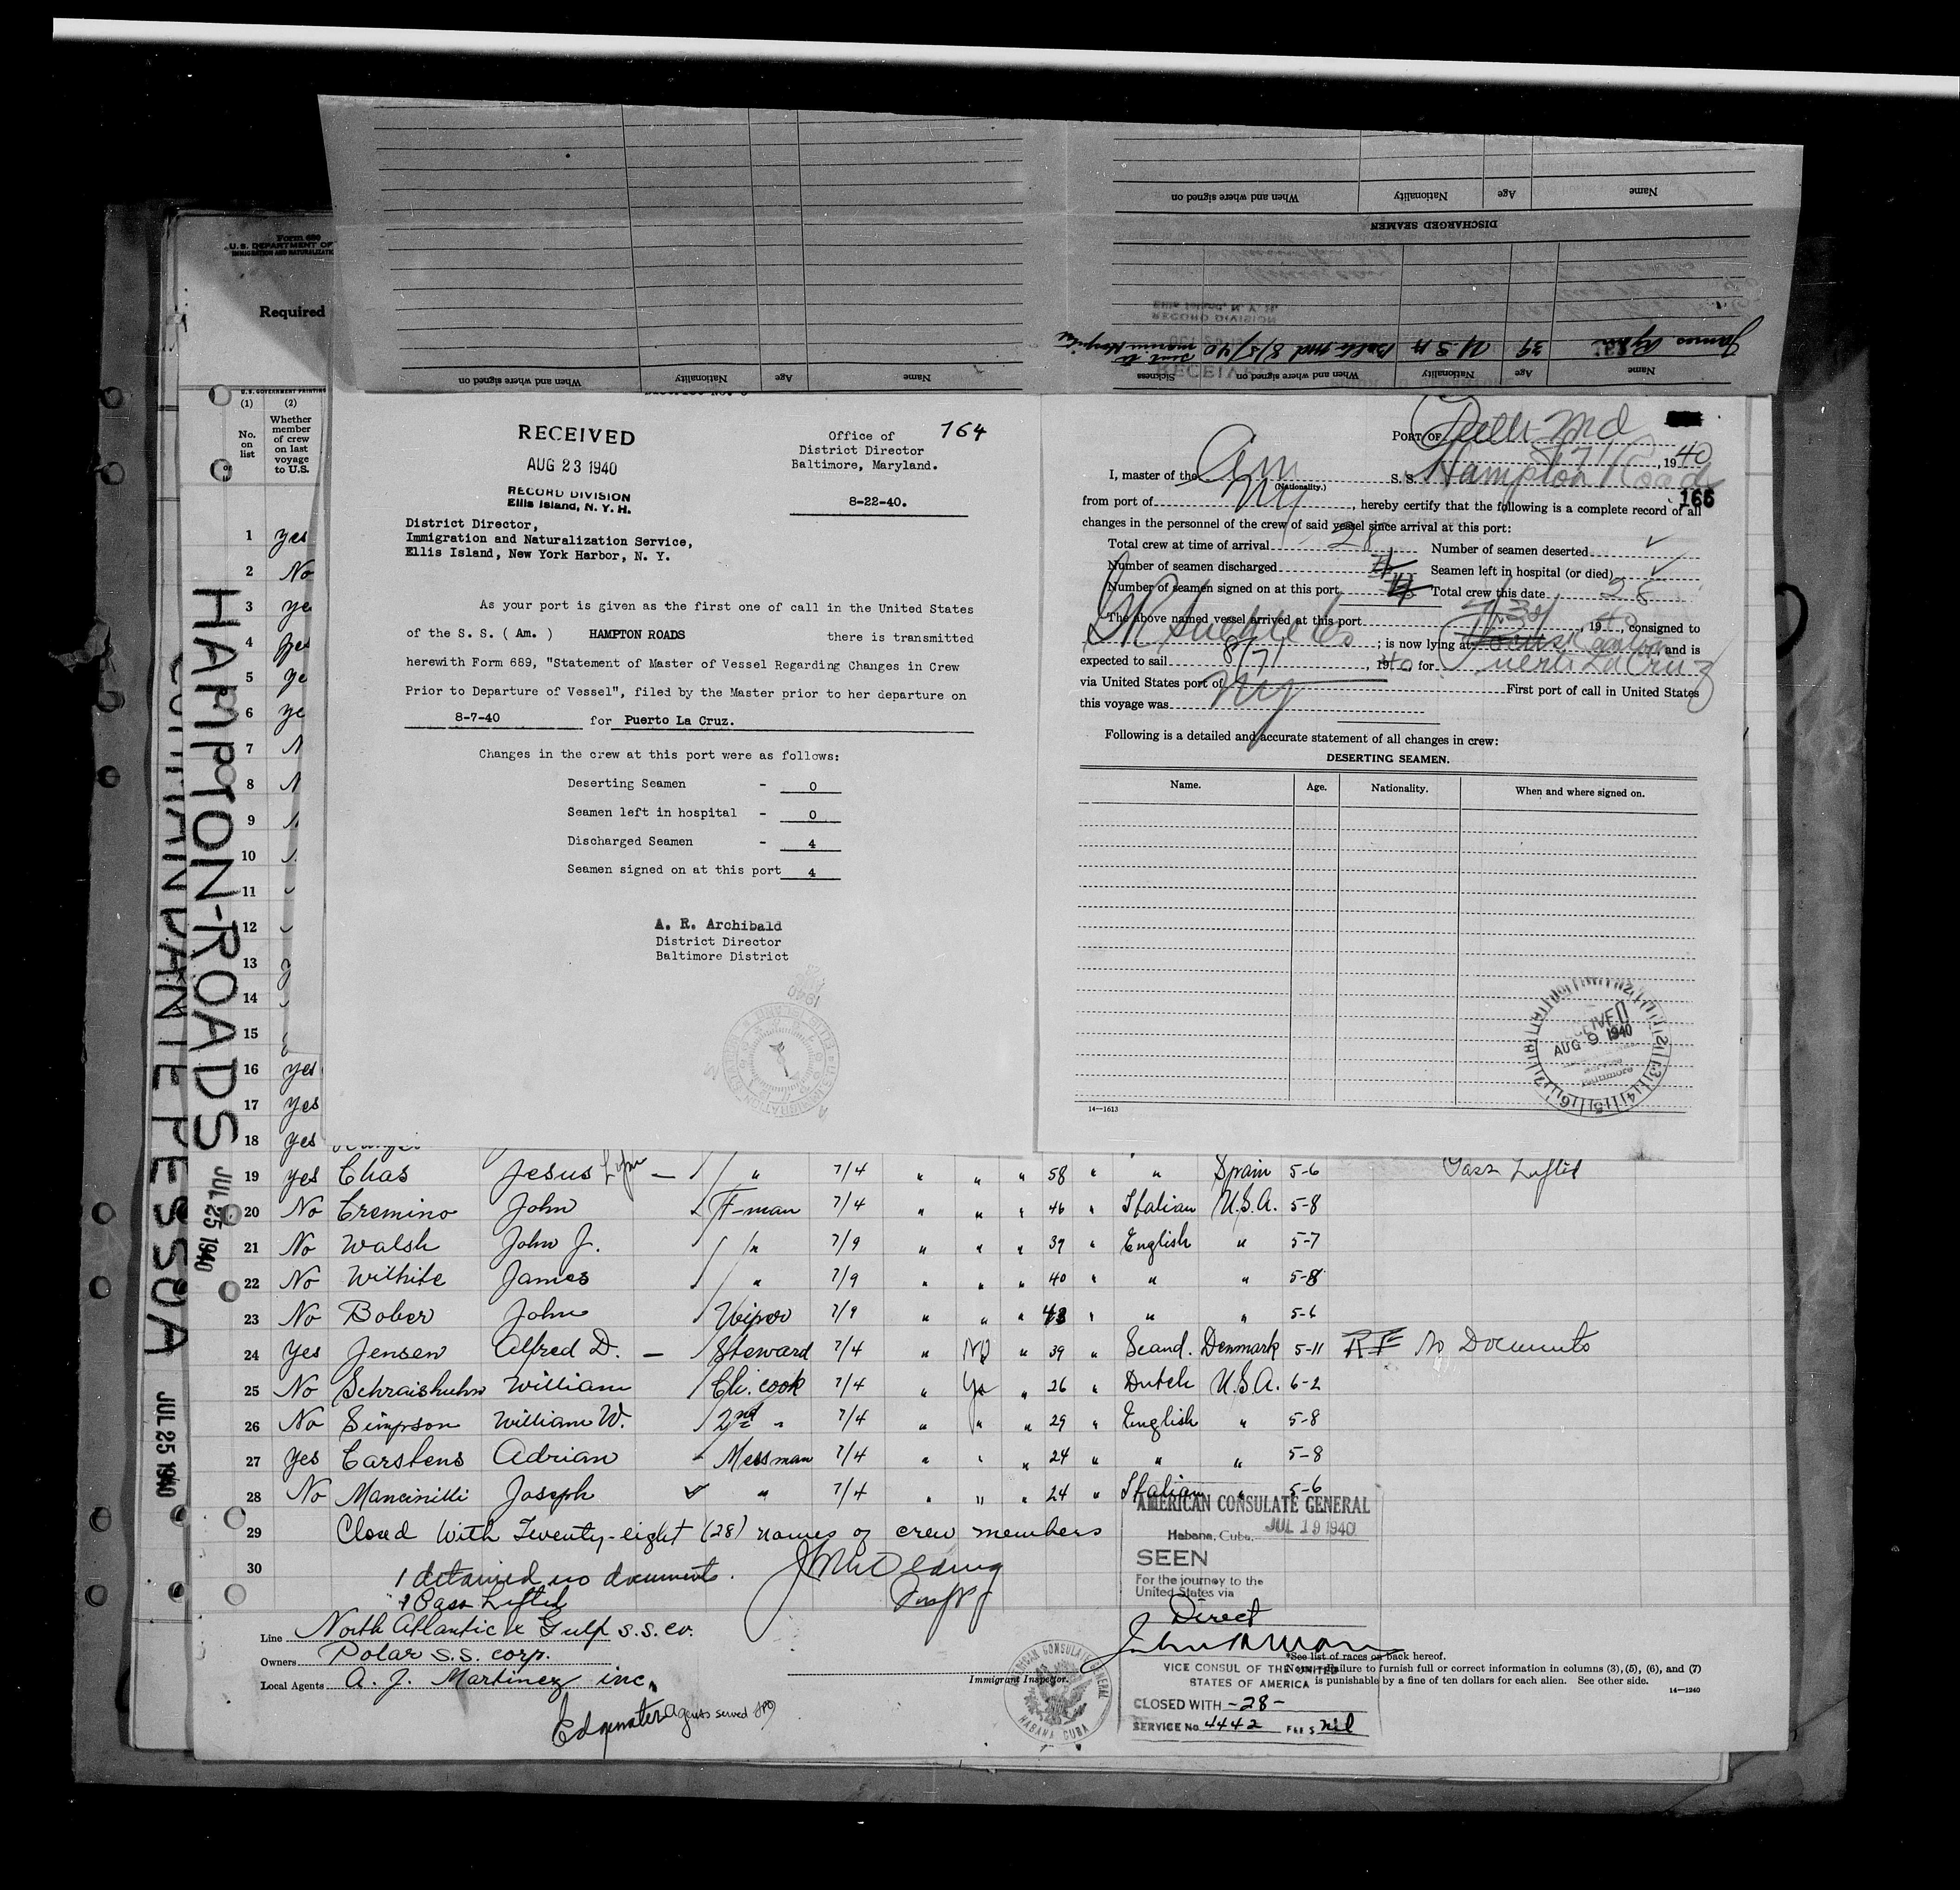 Form 689
U.S. DEPARTMENT OF
IMMIGRATION AND NATURALIZATI
Required
U.S. GOVERNMENT PRINTING
(1) (2)
No. on list
Whether member of crew on last voyage to U.S.
1 yes
2 No
3 ye
4 yes
5 ye
6 ye
7 N
8 N
9
10
11
12
13
14
15
16 yes
17 yes
18 yes
HAMPTON-ROADS
JUL 25 1940
PESSOA
JUL 25 1940
When and where signed on Nationality Age Name
When and where signed on Nationality Age Name
DISCHARGED SEAMEN
James Ryan 39 USA Balto md 8/5/40 sent to marine Hospital
Name Age Nationality When and where signed on Sickness
RECEIVED
RECORD DIVISION
Ellis Island, N. Y. H.
RECEIVED
AUG 23 1940
RECORD DIVISION
Ellis Island, N. Y. H.
164
Office of
District Director
Baltimore, Maryland.
8-22-40.
District Director,
Immigration and Naturalization Service,
Ellis Island, New York Harbor, N. Y.
As your port is given as the first one of call in the United States
of the S. S. ( Am. ) HAMPTON ROADS there is transmitted
herewith Form 689, "Statement of Master of Vessel Regarding Changes in Crew
Prior to Departure of Vessel", filed by the Master prior to her departure on
8-7-40 for Puerto La Cruz.
Changes in the crew at this port were as follows:
Deserting Seamen - 0
Seamen left in hospital - 0
Discharged Seamen - 4
Seamen signed on at this port 4
A. R. Archibald
District Director
Baltimore District
PORT OF Balto Md
8/7, 1940
I, master of the Am S. S. Hampton Roads
(Nationality.)
166
from port of NY, hereby certify that the following is a complete record of all
changes in the personnel of the crew of said vessel since arrival at this port:
Total crew at time of arrival 28 Number of seamen deserted ✓
Number of seamen discharged 4 Seamen left in hospital (or died) ✓
Number of seamen signed on at this port 4 Total crew this date 28
The above named vessel arrived at this port 7/30, 1940, consigned to
; is now lying at Canton and is
expected to sail 8/7, 1940, for Puerto La Cruz
via United States port of First port of call in United States
this voyage was NY
Following is a detailed and accurate statement of all changes in crew:
DESERTING SEAMEN.
Name. Age. Nationality. When and where signed on.
RECEIVED
AUG 9 1940
Baltimore
14—1613
19 yes Chas Jesus — / " 7/4 " " " 58 " " Spain 5-6 Pass Lifted
20 No Cremino John F-man 7/4 " " " 46 " Italian U.S.A. 5-8
21 No Walsh John J. / " 7/9 " " " 39 " English " 5-7
22 No Wilhite James / " 7/9 " " " 40 " " " 5-8
23 No Bober John / Wiper 7/9 " " " 43 " " " 5-6
24 Yes Jensen Alfred D. — / Steward 7/4 " No " 39 " Scand. Denmark 5-11 No Documents
25 No Schraishuhn William / Ch. cook 7/4 " Ys " 26 " Dutch U.S.A. 6-2
26 No Simpson William W. / 2nd " 7/4 " " " 29 " English " 5-8
27 Yes Carstens Adrian - Messman 7/4 " " " 24 " " " 5-8
28 No Mancinilli Joseph ✓ " 7/4 " " " 24 " Italian " 5-6
29 Closed With Twenty-eight (28) names of crew members
30
1 detained no documents.
1 Pass Lifted
AMERICAN CONSULATE GENERAL
Habana, Cuba, JUL 19 1940
SEEN
For the journey to the
United States via
Direct
VICE CONSUL OF THE UNITED
STATES OF AMERICA
CLOSED WITH -28-
SERVICE No. 4442 FEE $ nil
Line North Atlantic & Gulf S.S. Co.
Owners Polar S.S. corp.
Local Agents A. J. Martinez inc.
Edgewater Agents served
Immigrant Inspector.
AMERICAN CONSULATE GENERAL
HABANA CUBA
*See list of races on back hereof.
Note.—Failure to furnish full or correct information in columns (3), (5), (6), and (7)
is punishable by a fine of ten dollars for each alien. See other side.
14—1240